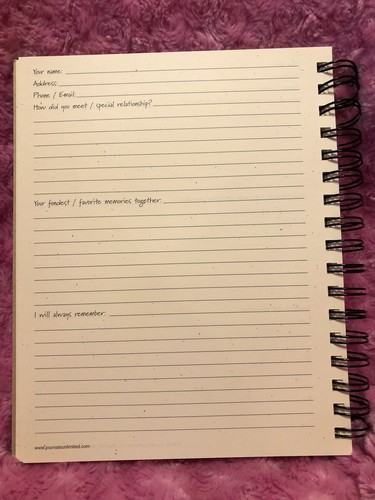 Your name:
Address:
Phone / Email:
How did you meet / special relationship?
Your fondest / favorite memories together:
I will always remember:
www.journalsunlimited.com